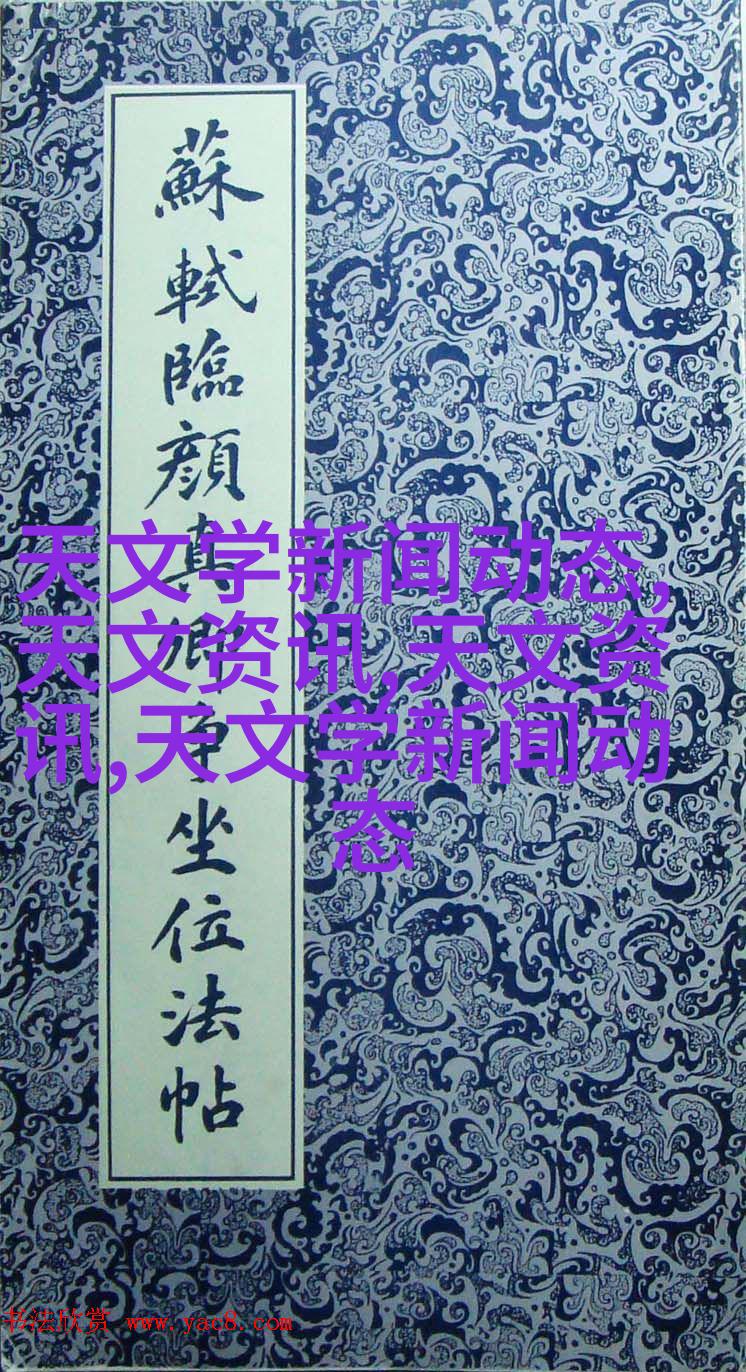 蘇軾臨顔真卿争坐位法帖
天文学新闻动态,
天文资讯,天文资
讯,天文学新闻动
态
书法欣赏 www.yac8.com